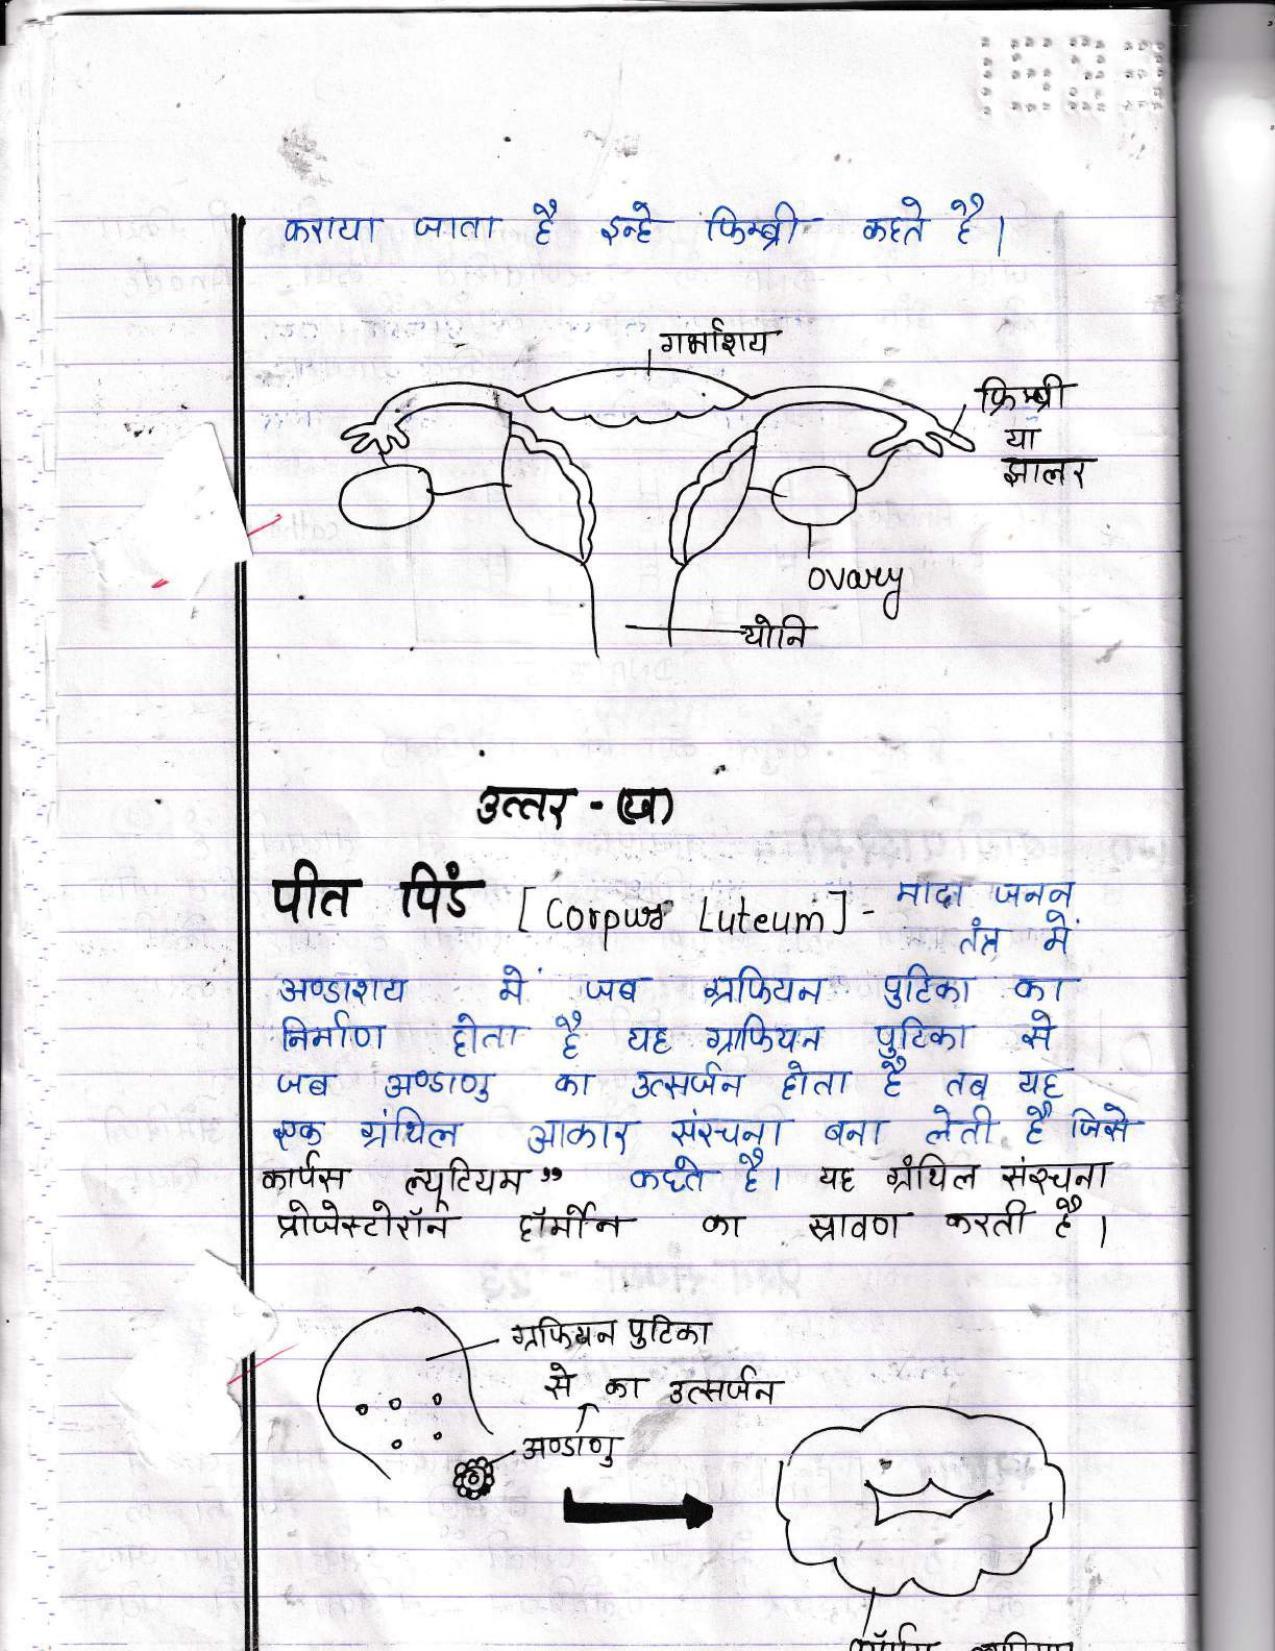 कराया जाता है इन्हे फिम्ब्री कहते है।
गर्भाशय
फिम्ब्री
या
झालर
ovary
योनि
उत्तर - (ख)
पीत पिंड [Corpus Luteum] - मादा जनन
तंत्र में
अण्डाशय में जब ग्रफियन पुटिका का
निर्माण होता है यह ग्राफियन पुटिका से
जब अण्डाणु का उत्सर्जन होता है तब यह
एक ग्रंथिल आकार संरचना बना लेती है जिसे
कार्पस ल्यूटियम" कहते है। यह ग्रंथिल संरचना
प्रोजेस्टोरॉन हॉर्मोन का स्रावण करती है।
ग्रफियन पुटिका
से का उत्सर्जन
अण्डाणु